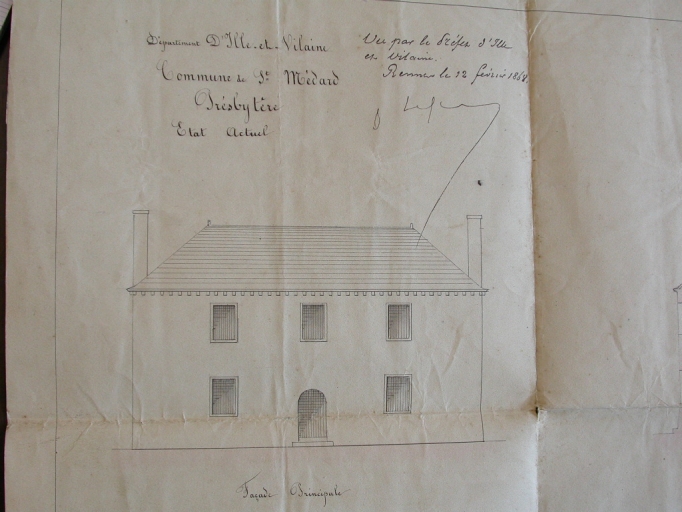 Département D'Ille-et-Vilaine
Commune de St. Médard
Presbytère
Etat Actuel
Vu par le Préfet d'Ille
et Vilaine.
Rennes le 12 février 186
Façade Principale